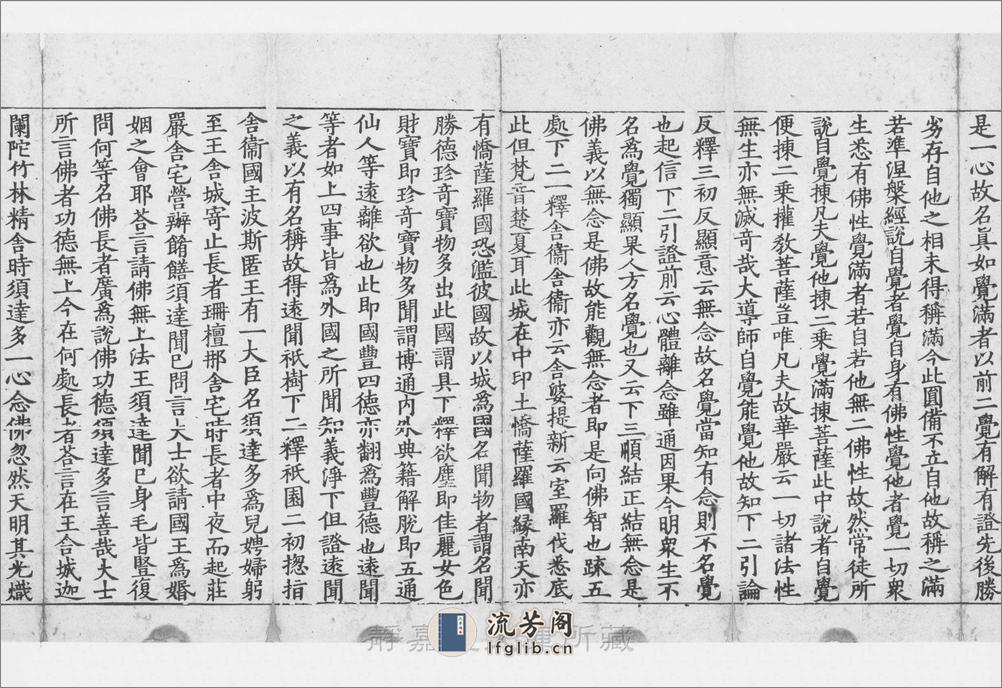 是一心故名真如覺滿者以前二覺有解有證先後勝
劣存自他之相未得稱滿今此圓備不立自他故稱之滿
若準涅槃經說自覺者覺自身有佛性覺他者覺一切衆
生悉有佛性覺滿者若自若他無二佛性故然常徒所
說自覺揀凡夫覺他揀二乗覺滿揀菩薩此中說者自覺
便揀二乗權教菩薩豈唯凡夫故華嚴云一切諸法性
無生亦無滅竒哉大導師自覺能覺他故知下二引論
反釋三初反顯意云無念故名覺當知有念則不名覺
也起信下二引證前云心體離念雖通因果今明衆生不
名爲覺獨顯果人方名覺也又云下三順結正結無念是
佛義以無念是佛故能觀無念者即是向佛智也踈五
處下二一釋舍衞舍衞亦云舍婆提新云室羅伐悉底
此但梵音楚夏耳此城在中印土憍薩羅國緣南天亦
有憍薩羅國恐濫彼國故以城爲國名聞物者謂名聞
勝德珍竒寶物多出此國謂具下釋欲塵即佳麗女色
財寶即珍竒寶物多聞謂博通内外典籍解脫即五通
仙人等遠離欲也此即國豐四德亦翻爲豐德也遠聞
等者如上四事皆爲外國之所聞知義淨下但證遠聞
之義以有名稱故得遠聞祇樹下二釋祇園二初揔指
舍衞國主波斯匿王有一大臣名須達多爲兒娉婦躬
至王舍城寄止長者珊檀那舍宅時長者中夜而起莊
嚴舍宅營辦餚饍須達聞已問言大士欲請國王爲婚
姻之會耶荅言請佛無上法王須達聞已身毛皆豎復
問何等名佛長者廣爲說佛功德須達多言善哉大士
所言佛者功德無上今在何處長者荅言在王舍城迦
蘭陀竹林精舍時須達多一心念佛忽然天明其光熾
流芳阁
lfglib.cn
靜嘉 所藏